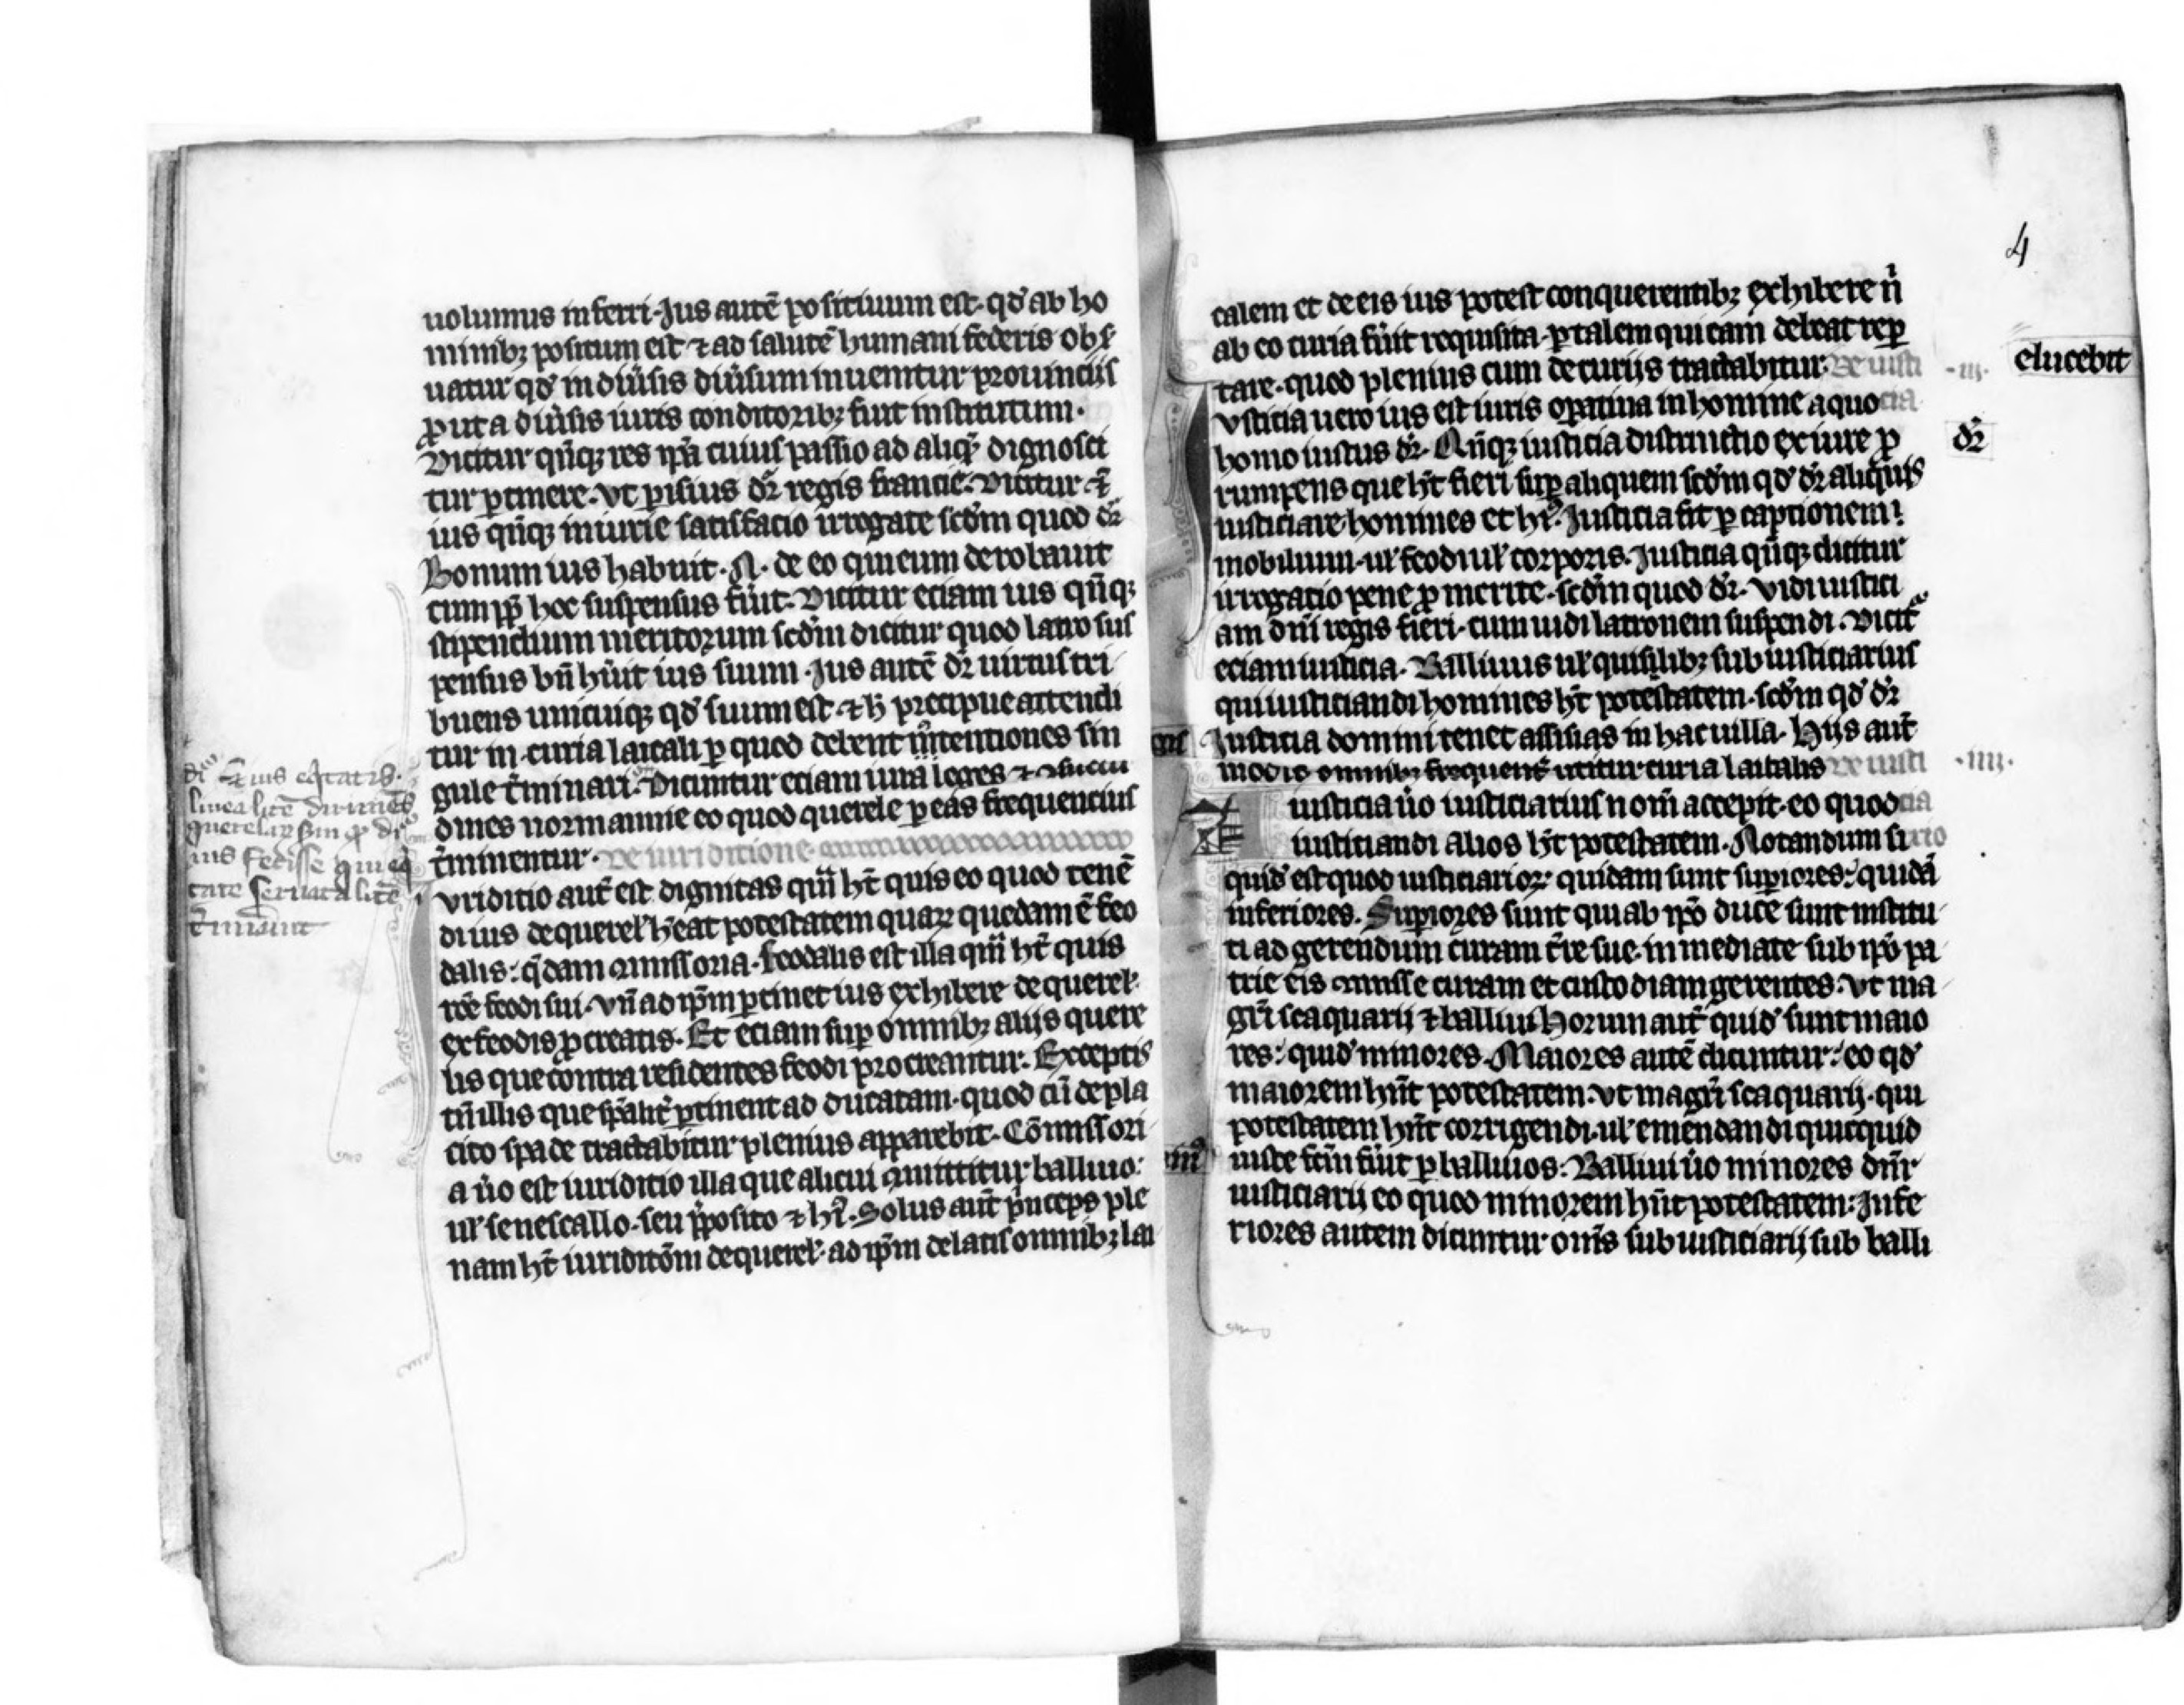 uolumus inferri. Jus autē positiuum est. qđ ab ho
minibꝫ positum est ⁊ ad salutē humani federis obs̉
uatur qđ in diu̓sis diu̓sum inuenitur prouinciis
ꝓut a diu̓sis iuris conditoribꝫ fuit institutum.
Dicitur qn̄qꝫ res ip̄a cuius passio ad aliqꝫ dignosci
tur ꝑtinere. vt ꝑisius dr̄ regis francie. Dicitur ⁊
ius qn̄qꝫ iniurie satisfacio irrogate scd̄m quod dr̄
Bonum ius habuit. N. de eo qui eum derobauit
cum ꝓp̄ hoc suspensus fu̓it. Dicitur eciam ius qn̄qꝫ
stipendium meritorum scd̄m dicitur quod latro sus
pensus bn̄ hu̓it ius suum. Jus autē dr̄ uirtus tri
buens unicuiqꝫ qđ suum est. ⁊ ħ precipue attendi
tur in curia laicali ꝑ quod debent ɔ̓tentiones sin
gule t̄minari. Dicuntur eciam iura leges ⁊ ɔsuetu
dines normannie eo quod querele ꝑ eas frequencius
t̄minentur. De iuriditione
vriditio aut̄ est dignitas quā ht̄ quis eo quod tenē
di ius de querel̓ heat potestatem quaꝝ quedam ē feo
dalis: q̄dam ɔmissoria. feodalis est illa quā ht̄ quis
rōe feodi sui. vn̄ ad ip̄m ꝑtinet ius exhibere de querel̓
ex feodis ꝓcreatis. Et eciam suꝑ omnibꝫ aliis quere
lis que contra residentes feodi procreantur. Exceptis
tn̄ illis que sp̄alit̄ ꝑtinent ad ducatum. quod cū de pla
cito spade tractabitur plenius apparebit. Cōmissori
a u̓o est iuriditio illa que alicui ɔmittitur balliuo:
ul̓ senescallo. seu p̄posito ⁊ hī. Solus aut̄ p̓nceps ple
nam ht̄ iuriditōm de querel̓ ad ip̄m delatis omnibꝫ lai
linealitē dirimēs
tare seruata litē
t̄minant
4
calem et de eis ius potest conquerentibꝫ exhibere n̓
ab eo curia fu̓it requisita. ꝑ talem qui eam debeat rep
tare. quod plenius cum de curiis tractabitur. De iusti
.iii.
elucebit
vsticia uero ius est iuris oꝑatiua in homine a quo cia
homo iustus dr̄. Qn̄qꝫ iusticia districtio ex iure ꝓ
dr̄
rumpens que ht̄ fieri suꝑ aliquem scd̄m qđ dr̄ aliquis
iusticiare homines et hī. Justicia fit ꝑ captionem
mobilium. ul̓ feodi ul̓ corporis. Justicia qn̄qꝫ dicitur
irrogatio pene ꝓ merite. scd̄m quod dr̄. vidi iustici
am dn̄i regis fieri. cum uidi latronem suspendi. Dicit̄
eciam iusticia. Balliuus ul̓ quislibꝫ subiusticiarius
qui iusticiandi homines ht̄ potestatem. scd̄m qđ dr̄
Justicia domini tenet assisias in hac uilla. Hiis aut̄
modis omnibꝫ frequent̄ utitur curia laicalis De iusti
.iiii.
iusticia u̓o iusticiarius nom̄ accepit. eo quod cia
iusticiandi alios ht̄ potestatem. Notandum si rio
quid̄ est quod iusticiarioꝝ quidam sunt suꝑiores: quidā
inferiores. Suꝑiores sunt qui ab ip̄o duce sunt institu
ti ad gerendum curam t̄re sue. inmediate sub ip̄o pa
trie eis ɔmisse curam et custodiam gerentes. vt ma
gr̄i scaquarii ⁊ balliui. Horum aut̄ quid̄ sunt maio
res: quid̄ minores. Maiores autē dicuntur: eo qđ
maiorem hn̄t potestatem. vt magr̄i scaquarii. qui
potestatem hn̄t corrigendi. ul̓ emendandi quicquid
iuste fc̄m fu̓it ꝑ balliuos: Balliui u̓o minores dn̄r
iusticiarii eo quod minorem hn̄t potestatem: Infe
riores autem dicuntur om̄s sub iusticiarii sub balli